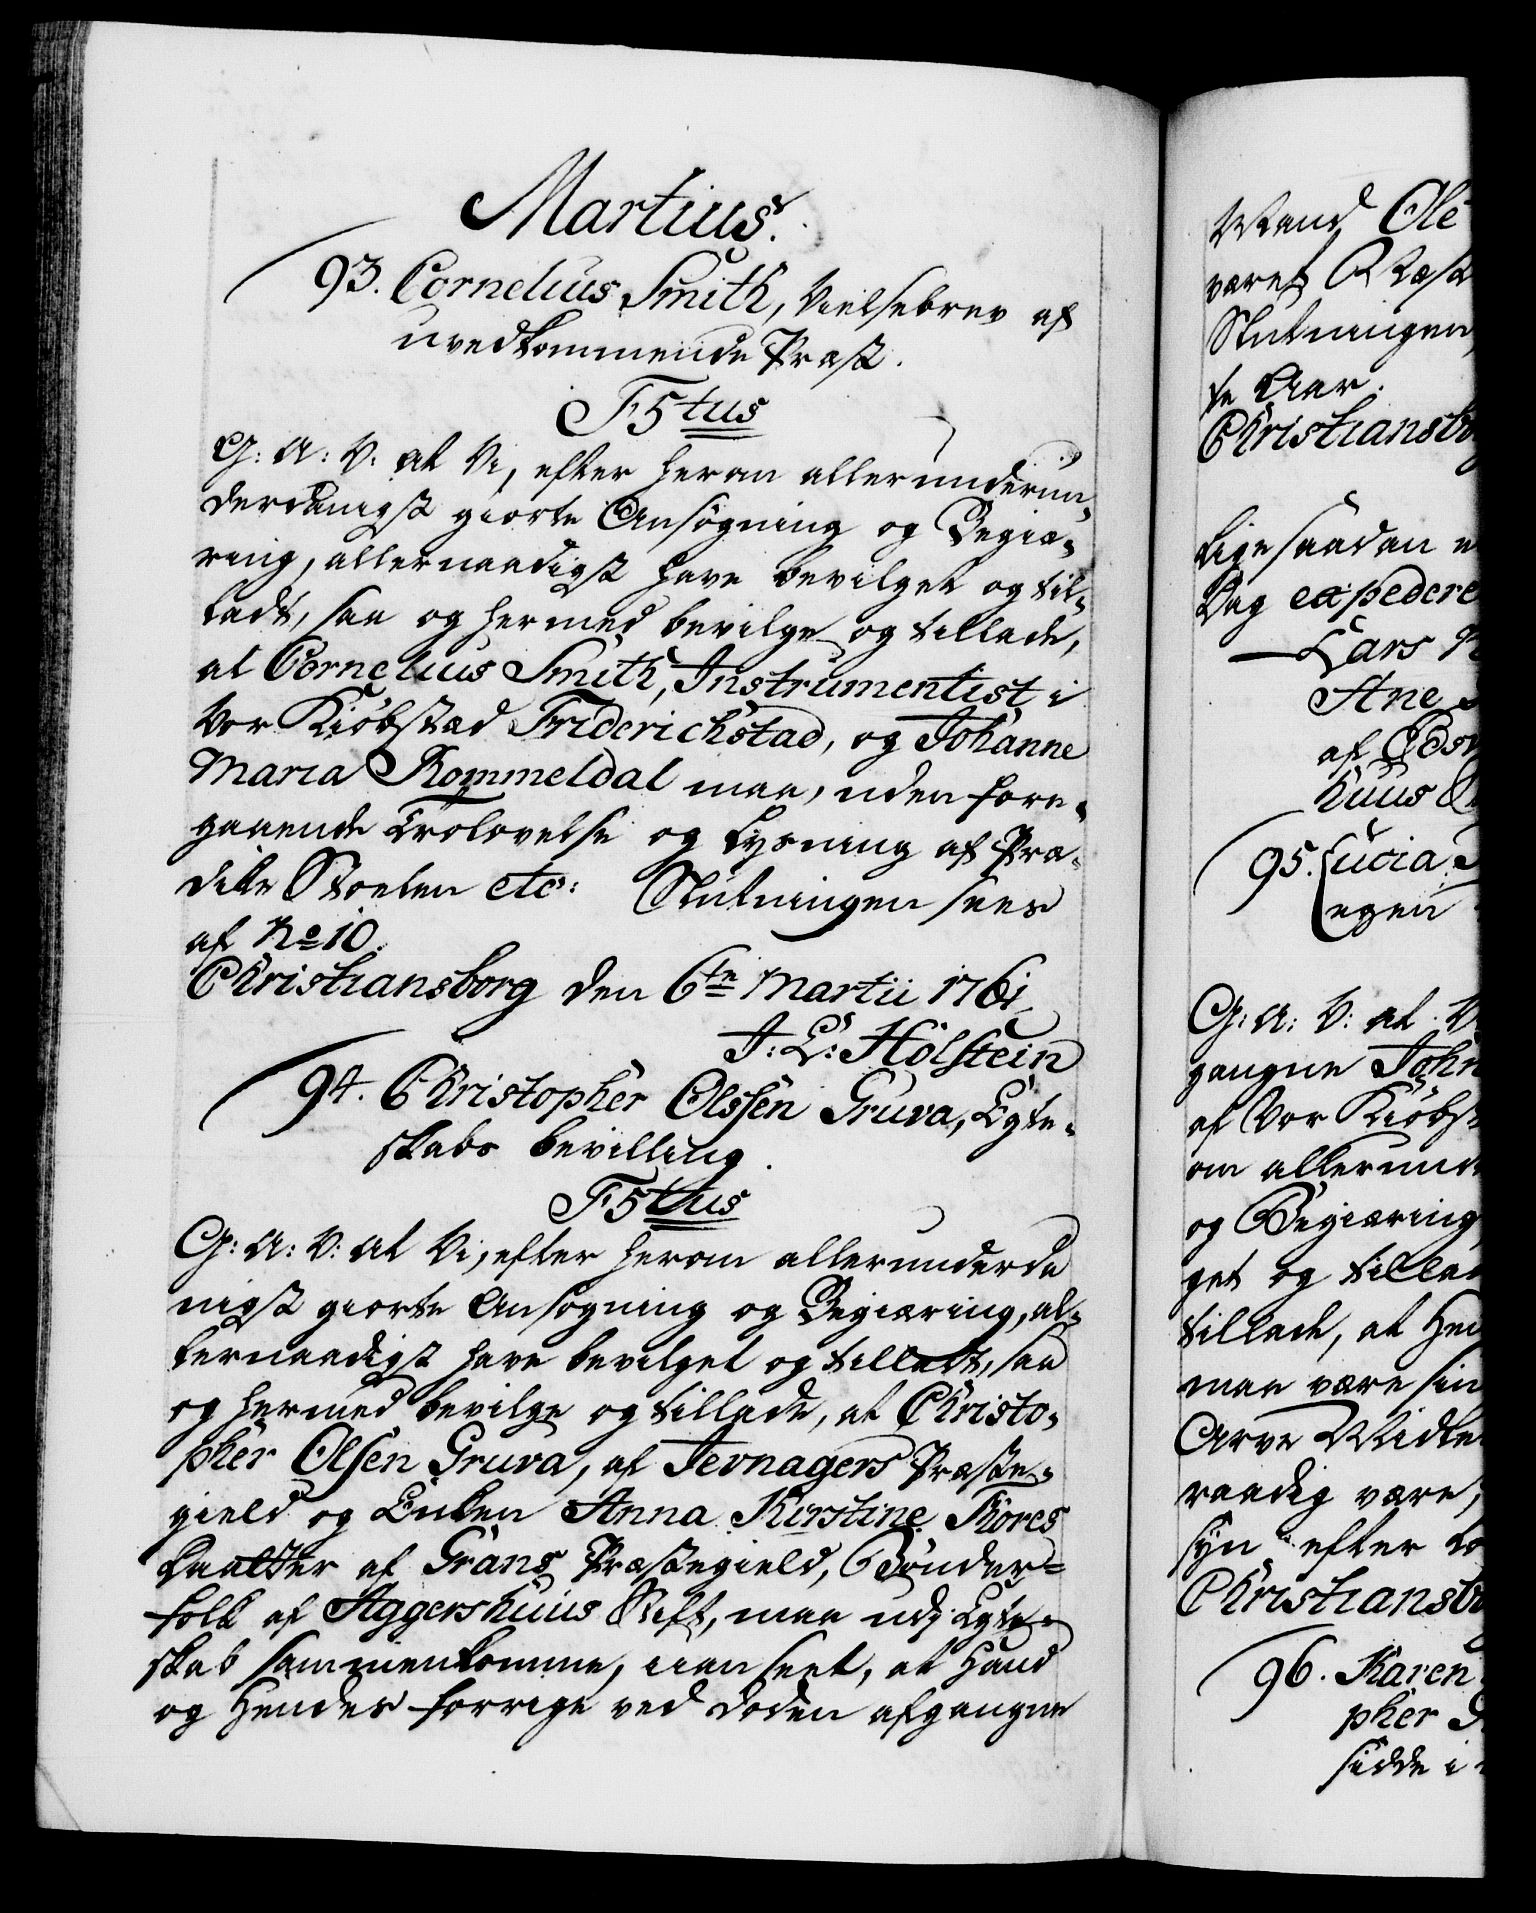 Martius.
93. Cornelius Smith, Vielsebrev af
uvedkommende Præst.
F5tus
G: A: V: at Vi, efter herom allerunderun-
derdanigst giorte Ansøgning og Begiæ-
ring, allernaadigst have bevilget og til-
ladt, saa og hermed bevilge og tillade,
at Cornelius Smith, Instrumentist i
Vor Kiøbstad Friderichstad, og Johanne
Maria Rommeldal maa, uden fore-
gaaende Trolovelse og Lysning af Præ-
dike Stoelen etc: Slutningen sees
af No 10.
Christiansborg den 6te Martii 1761
J: L: Holstein
94. Christopher Olssen Gruva, Egte-
skabs bevilling.
F5tus
G: A: V: at Vi, efter herom allerunderda
nigst giorte Ansøgning og Begiæring, al-
lernaadigst have bevilget og tilladt, saa
og hermed bevilge og tillade, at Christo-
pher Olsen Gruva, af Jevnagers Præste-
gield og Enken Anna Kirstine Kores
Daatter af Grans Præstegield, Bønder-
folk af Aggershuus Stift, maa udj Egte-
skab sammenkomme, uanseet, at Hand
og Hendes forrige ved døden afgangne
Mand Ole
været
Slutningen
te Aar.
Christiansbo
Lige saadan
Dag expedere
Lars
Ane
af
huus
95. Lucia
egen
G: A: V: at V
gangne John
af Vor Kiøbs
om allerund
og Begiæring
get og tillad
tillade, at Hen
maa være sin
Arve Midle
raadig være,
syn efter Lo
Christiansbo
96. Karen
pher
sidde i